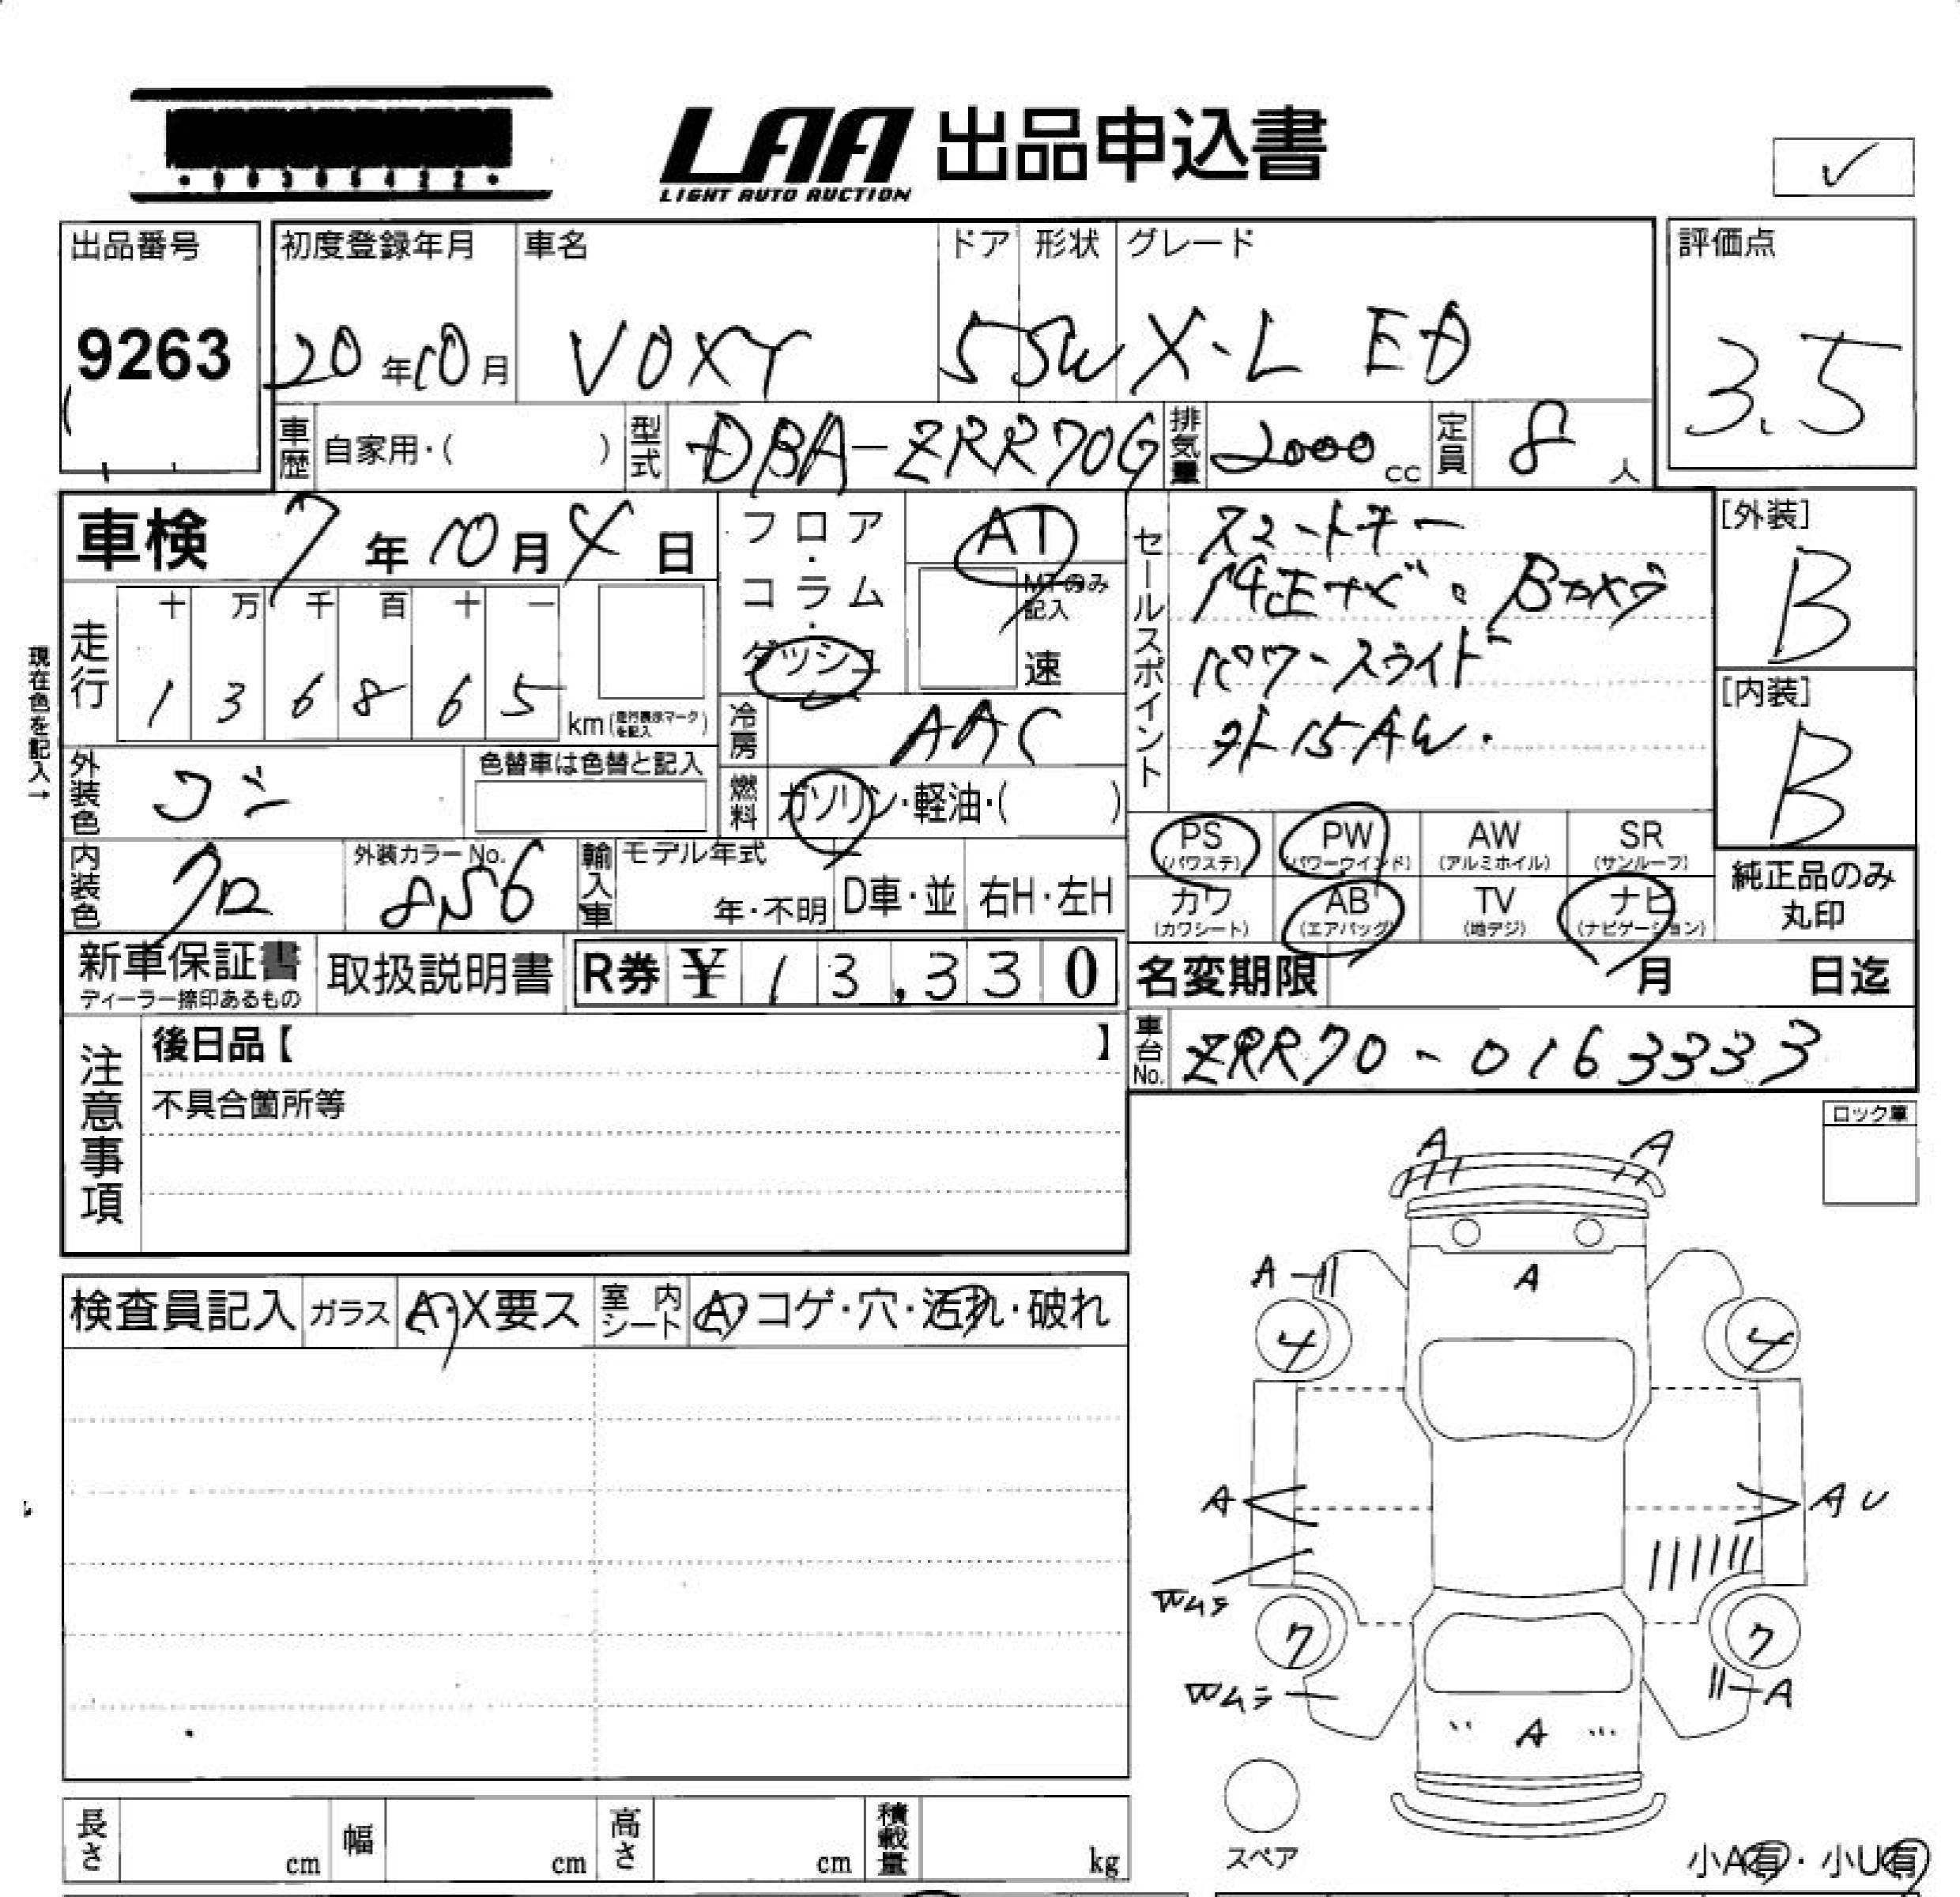 ・90305422・
LAA 出品申込書
LIGHT AUTO AUCTION
✓
出品番号
9263
初度登録年月
20年10月
車名
VOXY
ドア
5
形状
SW
グレード
X-L ED
評価点
3.5
車歴 自家用・( )
型式 DBA-ZRR70G
排気量 2000cc
定員 8人
車検 7年10月4日
フロア・コラム・ダッシュ
AT
MTのみ記入
速
セールスポイント
スマートキー
純正ナビ。Bカメラ
パワースライド
外15AW.
[外装]
B
[内装]
B
現在色を記入→
走行
十 万 千 百 十 一
1 3 6 8 6 5 km(走行表示マークを記入)
冷房 AAC
外装色 コン
色替車は色替と記入
燃料 ガソリン・軽油・( )
内装色 クロ
外装カラーNo.
8S6
輸入車 モデル年式
年・不明
D車・並
右H・左H
PS (パワステ)
PW (パワーウインド)
AW (アルミホイル)
SR (サンルーフ)
カワ (カワシート)
AB (エアバッグ)
TV (地デジ)
ナビ (ナビゲーション)
純正品のみ
丸印
新車保証書
ディーラー捺印あるもの
取扱説明書
R券 ¥13,330
名変期限 月 日迄
注意事項
後日品【 】
不具合箇所等
車台No. ZRR70-0163333
ロック車
検査員記入 ガラス A・X要ス 室内シート A・コゲ・穴・汚れ・破れ
A A
A A
4 4
A A U
Wムラ
7 7
Wムラ A
A
スペア
小A有・小U有
長さ cm 幅 cm 高さ cm 積載量 kg